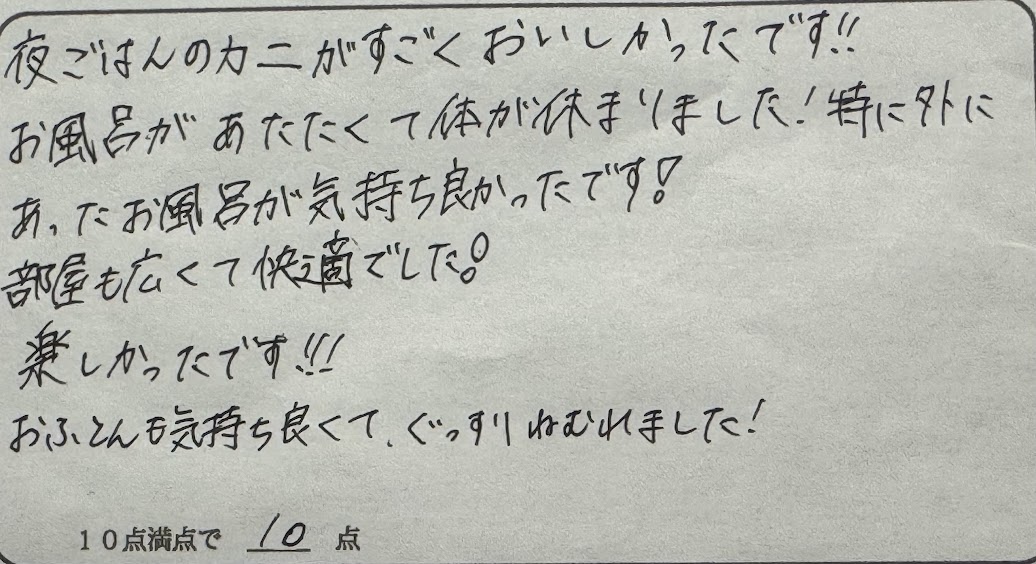 夜ごはんのカニがすごくおいしかったです!!
お風呂があたたくて体が休まりました!特に外に
あったお風呂が気持ち良かったです!
部屋も広くて快適でした!
楽しかったです!!!
おふとんも気持ち良くて、ぐっすりねむれました!
10点満点で 10 点